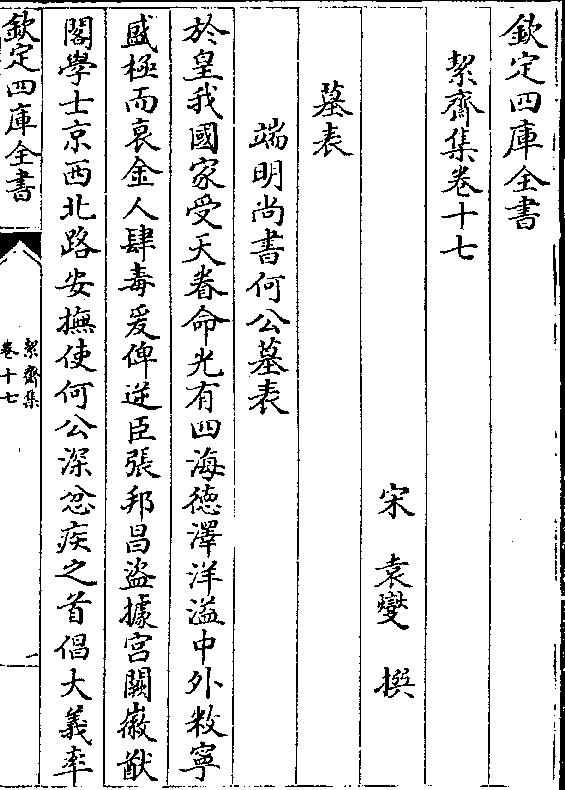 欽定四庫全書
絜齋集卷十七
宋 袁燮 撰
墓表
端明尚書何公墓表
於皇我國家受天眷命光有四海德澤洋溢中外敉寧
盛極而衰金人肆毒爰俾逆臣張邦昌盜據宮闕徽猷
閣學士京西北路安撫使何公深忿疾之首倡大義率
欽定四庫全書
絜齋集
卷十七
一